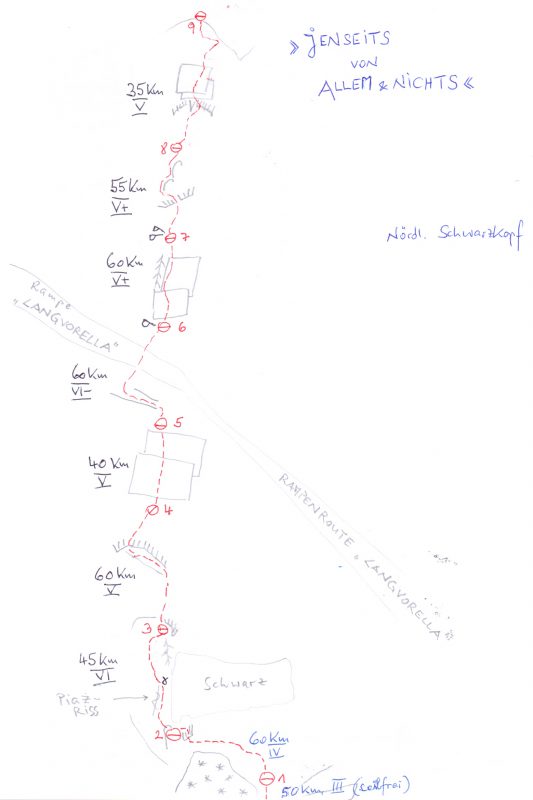 9
» JENSEITS
VON
ALLEM & NICHTS «
35Km
V
8
55Km
V+
Nördl. Schwarzkopf
7
60Km
V+
Rampe
„LANGVORELLA"
6
60Km
VI-
5
40Km
V
4
RAMPENROUTE „LANGVORELLA"
60Km
V
3
45Km
VI
Schwarz
Piaz-
Riss
2
60Km
IV
1
50Km III (seilfrei)